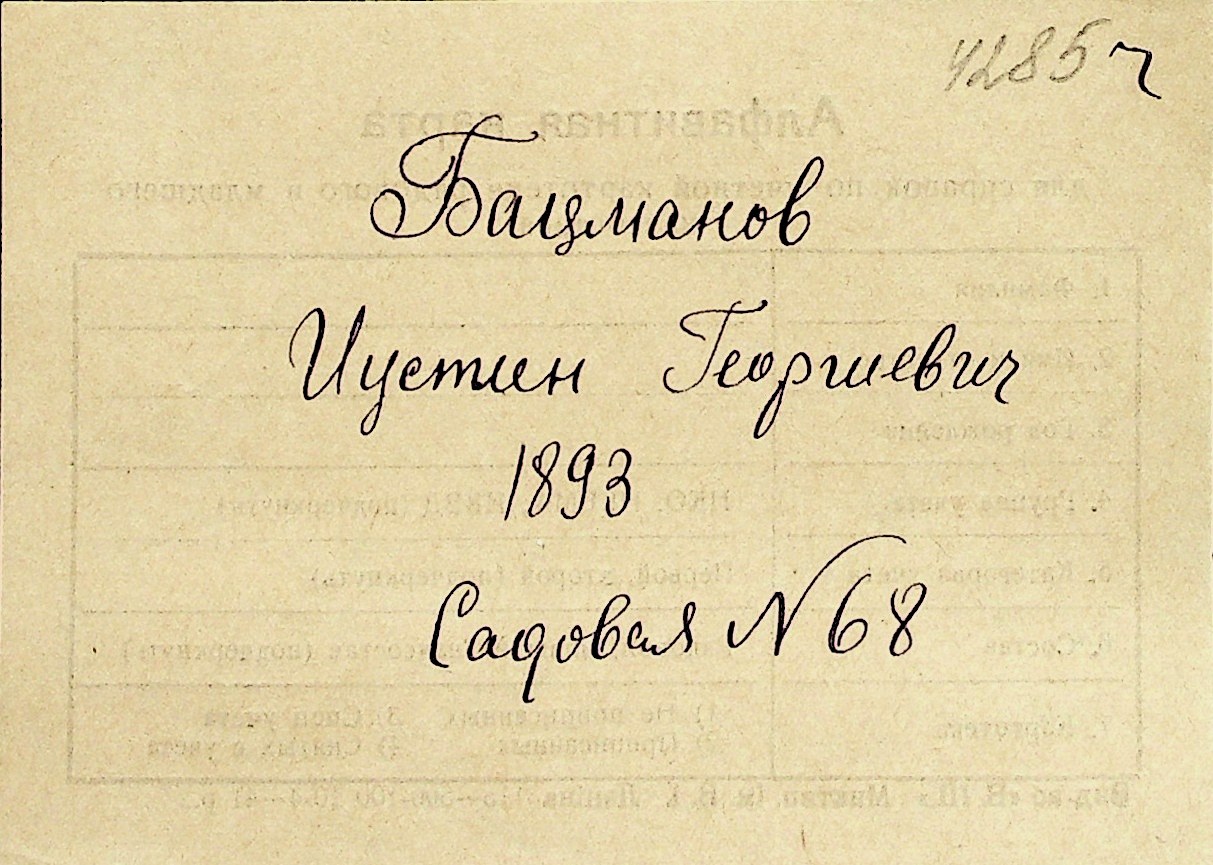 4285 ч
Бацманов
Иустин Георгиевич
1893
Садовая N 68